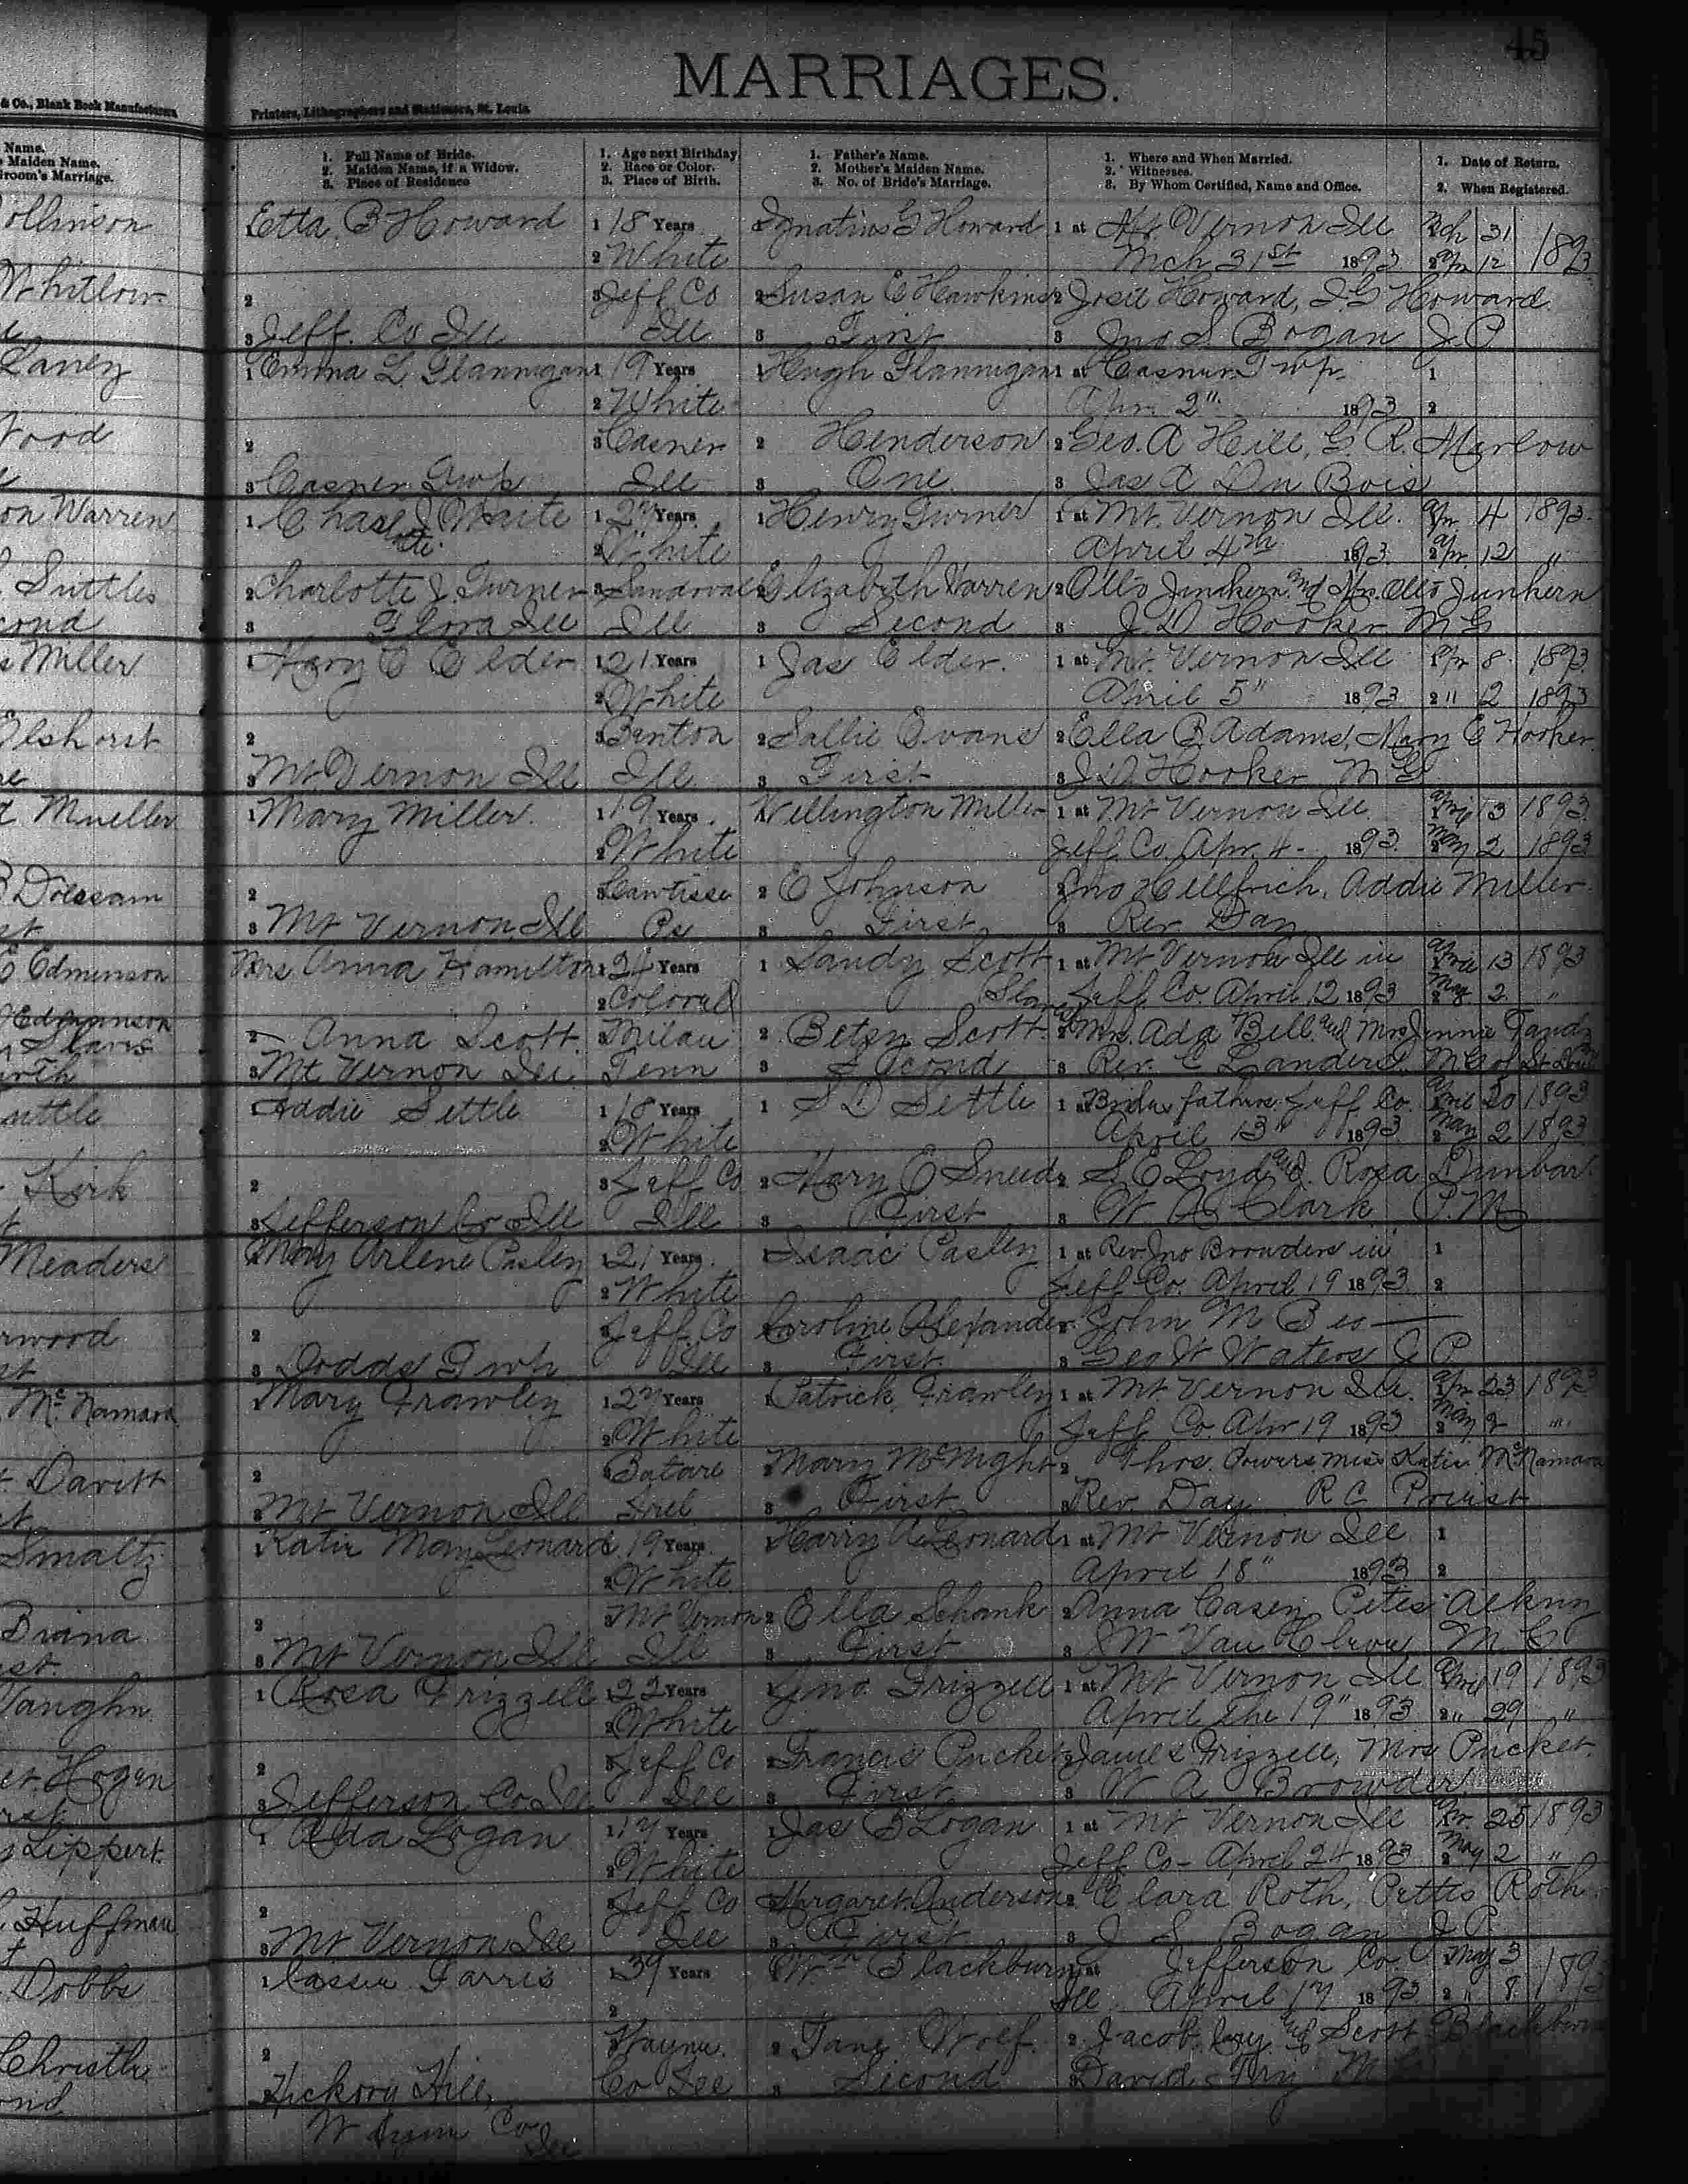 45
MARRIAGES.
& Co., Blank Book Manufacturers
Printers, Lithographers and Stationers, St. Louis.
Name.
Maiden Name.
Groom's Marriage.
1. Full Name of Bride.
2. Maiden Name, if a Widow.
3. Place of Residence
1. Age next Birthday
2. Race or Color.
3. Place of Birth.
1. Father's Name.
2. Mother's Maiden Name.
3. No. of Bride's Marriage.
1. Where and When Married.
2. Witnesses.
3. By Whom Certified, Name and Office.
1. Date of Return.
2. When Registered.
Etta B Howard 1 18 Years Ignatius G Howard 1 at Mt. Vernon Ill Mch 31 1893
2 White Mch 31st 1893 2 Apr 12
2 3 Jeff Co 2 Susan E Hawkins 2 Josie Howard, I. G Howard
3 Jeff. Co Ill Ill 3 First 3 Jno S. Bogan J. P
Whitlow
Laney 1 Emma L Flannigan 1 19 Years 1 Hugh Flannigan 1 at Casner Twp. 1
2 White Apr 2" 1893 2
Wood 2 3 Casner 2 Henderson 2 Geo. A Hill, G. R. Marlow
3 Casner Twp Ill 3 One 3 Jas A Du Bois
on Warren 1 Chaslotte J Waite 1 27 Years 1 Henry Turner 1 at Mt. Vernon Ill. Apr 4 1893
2 White April 4th 1893 2 Apr. 12 "
Suttles 2 Charlotte J. Turner 3 Sandoval 2 Elizabeth Warren 2 Otto Junkern and Mrs. Otto Junkern
cond 3 Flora Ill Ill 3 Second 3 J D Hooker M G
Miller 1 Mary E Elder 1 21 Years 1 Jas Elder. 1 at Mt. Vernon Ill Apr 8 1893
2 White April 5" 1893 2 " 12 1893
2 3 Benton 2 Sallie Evans 2 Ella B. Adams, Mary E Hooker
3 Mt. Vernon Ill Ill 3 First 3 J. D. Hooker M G
Mueller 1 Mary Miller 1 19 Years Wellington Miller 1 at Mt Vernon Ill April 13 1893
2 White Jeff Co Apr. 4 - 1893 2 May 2 1893
2 2 E Johnson 2 Jno Hellfrich, Addie Miller
3 Mt Vernon Ill Pa 3 First 3 Rev Day
Edminson Mrs Anna Hamilton 1 24 Years 1 Sandy Scott 1 at Mt Vernon Ill in April 13 1893
2 Colored Jeff. Co. April 12 1893 2 May 2 "
2 Anna Scott 3 Milan 2 Betsy Scott 2 Mrs. Ada Bell and Mrs Jennie Tandy
3 Mt Vernon Ill Tenn 3 Second 3 Rev. C Landers, M G of
1 Addie Settle 1 18 Years 1 S D Settle 1 at Brides fathers Jeff Co. April 20 1893
2 White April 13" 1893 2 May 2 1893
Kirk 2 3 Jeff Co 2 Mary E Sneed 2 S. E Loyd and Rosa Dunbar
3 Jefferson Co Ill Ill 3 First 3 W A Clark P. M
Meaders 1 Mary Arlene Pasley 1 21 Years 1 Isaac Pasley 1 at Rev Jno Browders in 1
2 White Jeff Co. April 19 1893 2
2 3 Jeff Co Caroline Alexander John M
3 Dodds Twp Ill 3 First 3 Geo W Waters J P
McNamara 1 Mary Frawley 1 27 Years 1 Patrick Frawley 1 at Mt Vernon Ill. Apr 23 1893
2 White Jeff Co Apr 19 1893 2 May 2 "
Davitt 2 2 Mary McNight 2 Thos. Powers, Miss Katie McNamara
3 Mt Vernon Ill Irel 3 First 3 Rev. Day R C Preist
Smaltz 1 Katie May Leonard 1 19 Years 1 Harry A Leonard 1 at Mt Vernon Ill 1
2 White April 18" 1893 2
2 3 Mt Vernon 2 Ella Schank 2 Anna Casey
3 Mt Vernon Ill Ill 3 First 3 J W Van Cleve M G
Vaughn 1 Rosa Frizzell 1 22 Years 1 Jno Frizzell 1 at Mt Vernon Ill April 19 1893
2 White April The 19" 1893 2 " 29 "
Hogen 2 3 Jeff Co 2 Francis Pucket 2 James Frizzell, Mrs Pucket
3 Jefferson Co Ill Ill 3 First 3 W A Browder
Lippert 1 Alda Logan 1 17 Years 1 Jas B Logan 1 at Mt Vernon Ill Apr. 25 1893
2 White Jeff Co - April 24 1893 2 May 2 "
Huffman 2 3 Jeff Co 2 Margaret Anderson 2 Clara Roth, Pettis Roth
3 Mt Vernon Ill Ill 3 First 3 J S Bogan J P
Dobbs 1 Cassie Farris 1 39 Years 1 Wm Blackburn 1 at Jefferson Co May 3 1893
2 Ill. April 17 1893 2 " 8
2 Wayne 2 Jane Wolf 2 Jacob Fry and Scott Blackburn
Hickory Hill, Co Ill 3 Second 3 David Fry M G
Wayne Co Ill